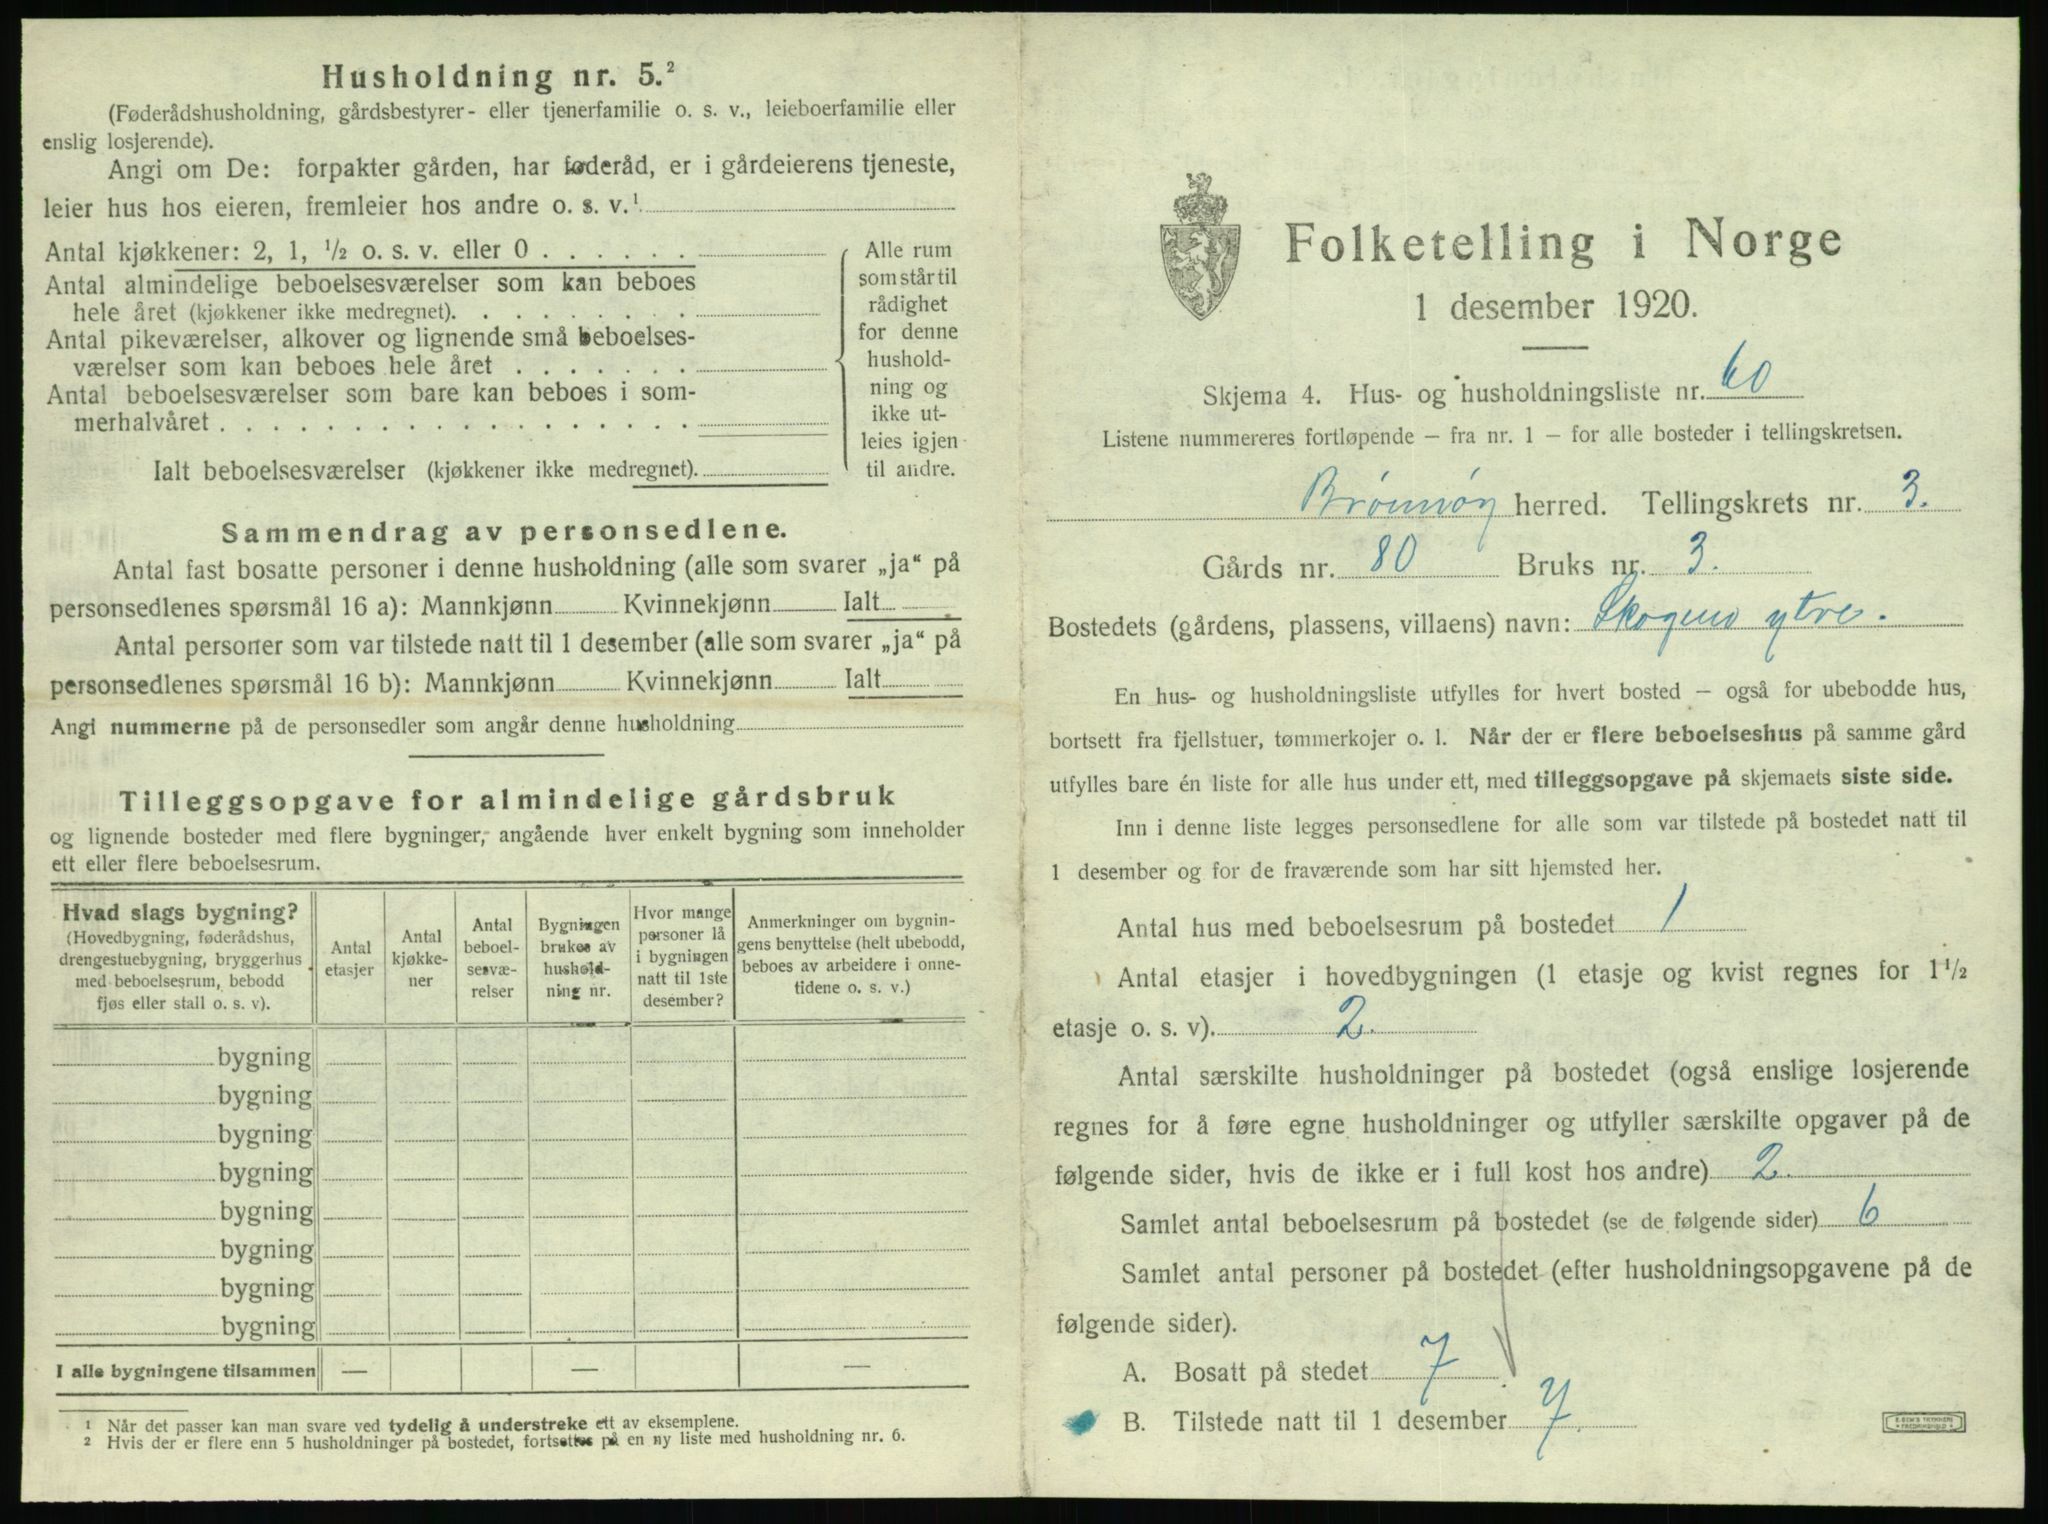 Husholdning nr. 5.²
(Føderådshusholdning, gårdsbestyrer- eller tjenerfamilie o. s. v., leieboerfamilie eller
enslig losjerende).
Angi om De: forpakter gården, har føderåd, er i gårdeierens tjeneste,
leier hus hos eieren, fremleier hos andre o. s. v.¹
Antal kjøkkener: 2, 1, ½ o. s. v. eller 0
Antal almindelige beboelsesværelser som kan beboes
hele året (kjøkkener ikke medregnet).
Antal pikeværelser, alkover og lignende små beboelses-
værelser som kan beboes hele året
Antal beboelsesværelser som bare kan beboes i som-
merhalvåret
Ialt beboelsesværelser (kjøkkener ikke medregnet).
Alle rum
som står til
rådighet
for denne
hushold-
ning og
ikke ut-
leies igjen
til andre.
Sammendrag av personsedlene.
Antal fast bosatte personer i denne husholdning (alle som svarer „ja“ på
personsedlenes spørsmål 16 a): Mannkjønn Kvinnekjønn Ialt
Antal personer som var tilstede natt til 1 desember (alle som svarer „ja“ på
personsedlenes spørsmål 16 b): Mannkjønn Kvinnekjønn Ialt
Angi nummerne på de personsedler som angår denne husholdning
Tilleggsopgave for almindelige gårdsbruk
og lignende bosteder med flere bygninger, angående hver enkelt bygning som inneholder
ett eller flere beboelsesrum.
Hvad slags bygning?
(Hovedbygning, føderådshus,
drengestuebygning, bryggerhus
med beboelsesrum, bebodd
fjøs eller stall o. s. v).
Antal
etasjer
Antal
kjøkke-
ner
Antal
beboel-
sesvæ-
relser
Bygningen
brukes av
hushold-
ning nr.
Hvor mange
personer lå
i bygningen
natt til 1ste
desember?
Anmerkninger om bygnin-
gens benyttelse (helt ubebodd,
beboes av arbeidere i onne-
tidene o. s. v.)
bygning
bygning
bygning
bygning
bygning
bygning
bygning
bygning
I alle bygningene tilsammen — — —
¹ Når det passer kan man svare ved tydelig å understreke ett av eksemplene.
² Hvis der er flere enn 5 husholdninger på bostedet, fortsettes på en ny liste med husholdning nr. 6.
Folketelling i Norge
1 desember 1920.
Skjema 4. Hus- og husholdningsliste nr. 60
Listene nummereres fortløpende – fra nr. 1 – for alle bosteder i tellingskretsen.
Brønnøy herred. Tellingskrets nr. 3.
Gårds nr. 80 Bruks nr. 3.
Bostedets (gårdens, plassens, villaens) navn: Skogmo ytre.
En hus- og husholdningsliste utfylles for hvert bosted – også for ubebodde hus,
bortsett fra fjellstuer, tømmerkojer o. l. Når der er flere beboelseshus på samme gård
utfylles bare én liste for alle hus under ett, med tilleggsopgave på skjemaets siste side.
Inn i denne liste legges personsedlene for alle som var tilstede på bostedet natt til
1 desember og for de fraværende som har sitt hjemsted her.
Antal hus med beboelsesrum på bostedet 1
Antal etasjer i hovedbygningen (1 etasje og kvist regnes for 1½
etasje o. s. v). 2.
Antal særskilte husholdninger på bostedet (også enslige losjerende
regnes for å føre egne husholdninger og utfyller særskilte opgaver på de
følgende sider, hvis de ikke er i full kost hos andre) 2.
Samlet antal beboelsesrum på bostedet (se de følgende sider) 6
Samlet antal personer på bostedet (efter husholdningsopgavene på de
følgende sider).
A. Bosatt på stedet 7
B. Tilstede natt til 1 desember 7.